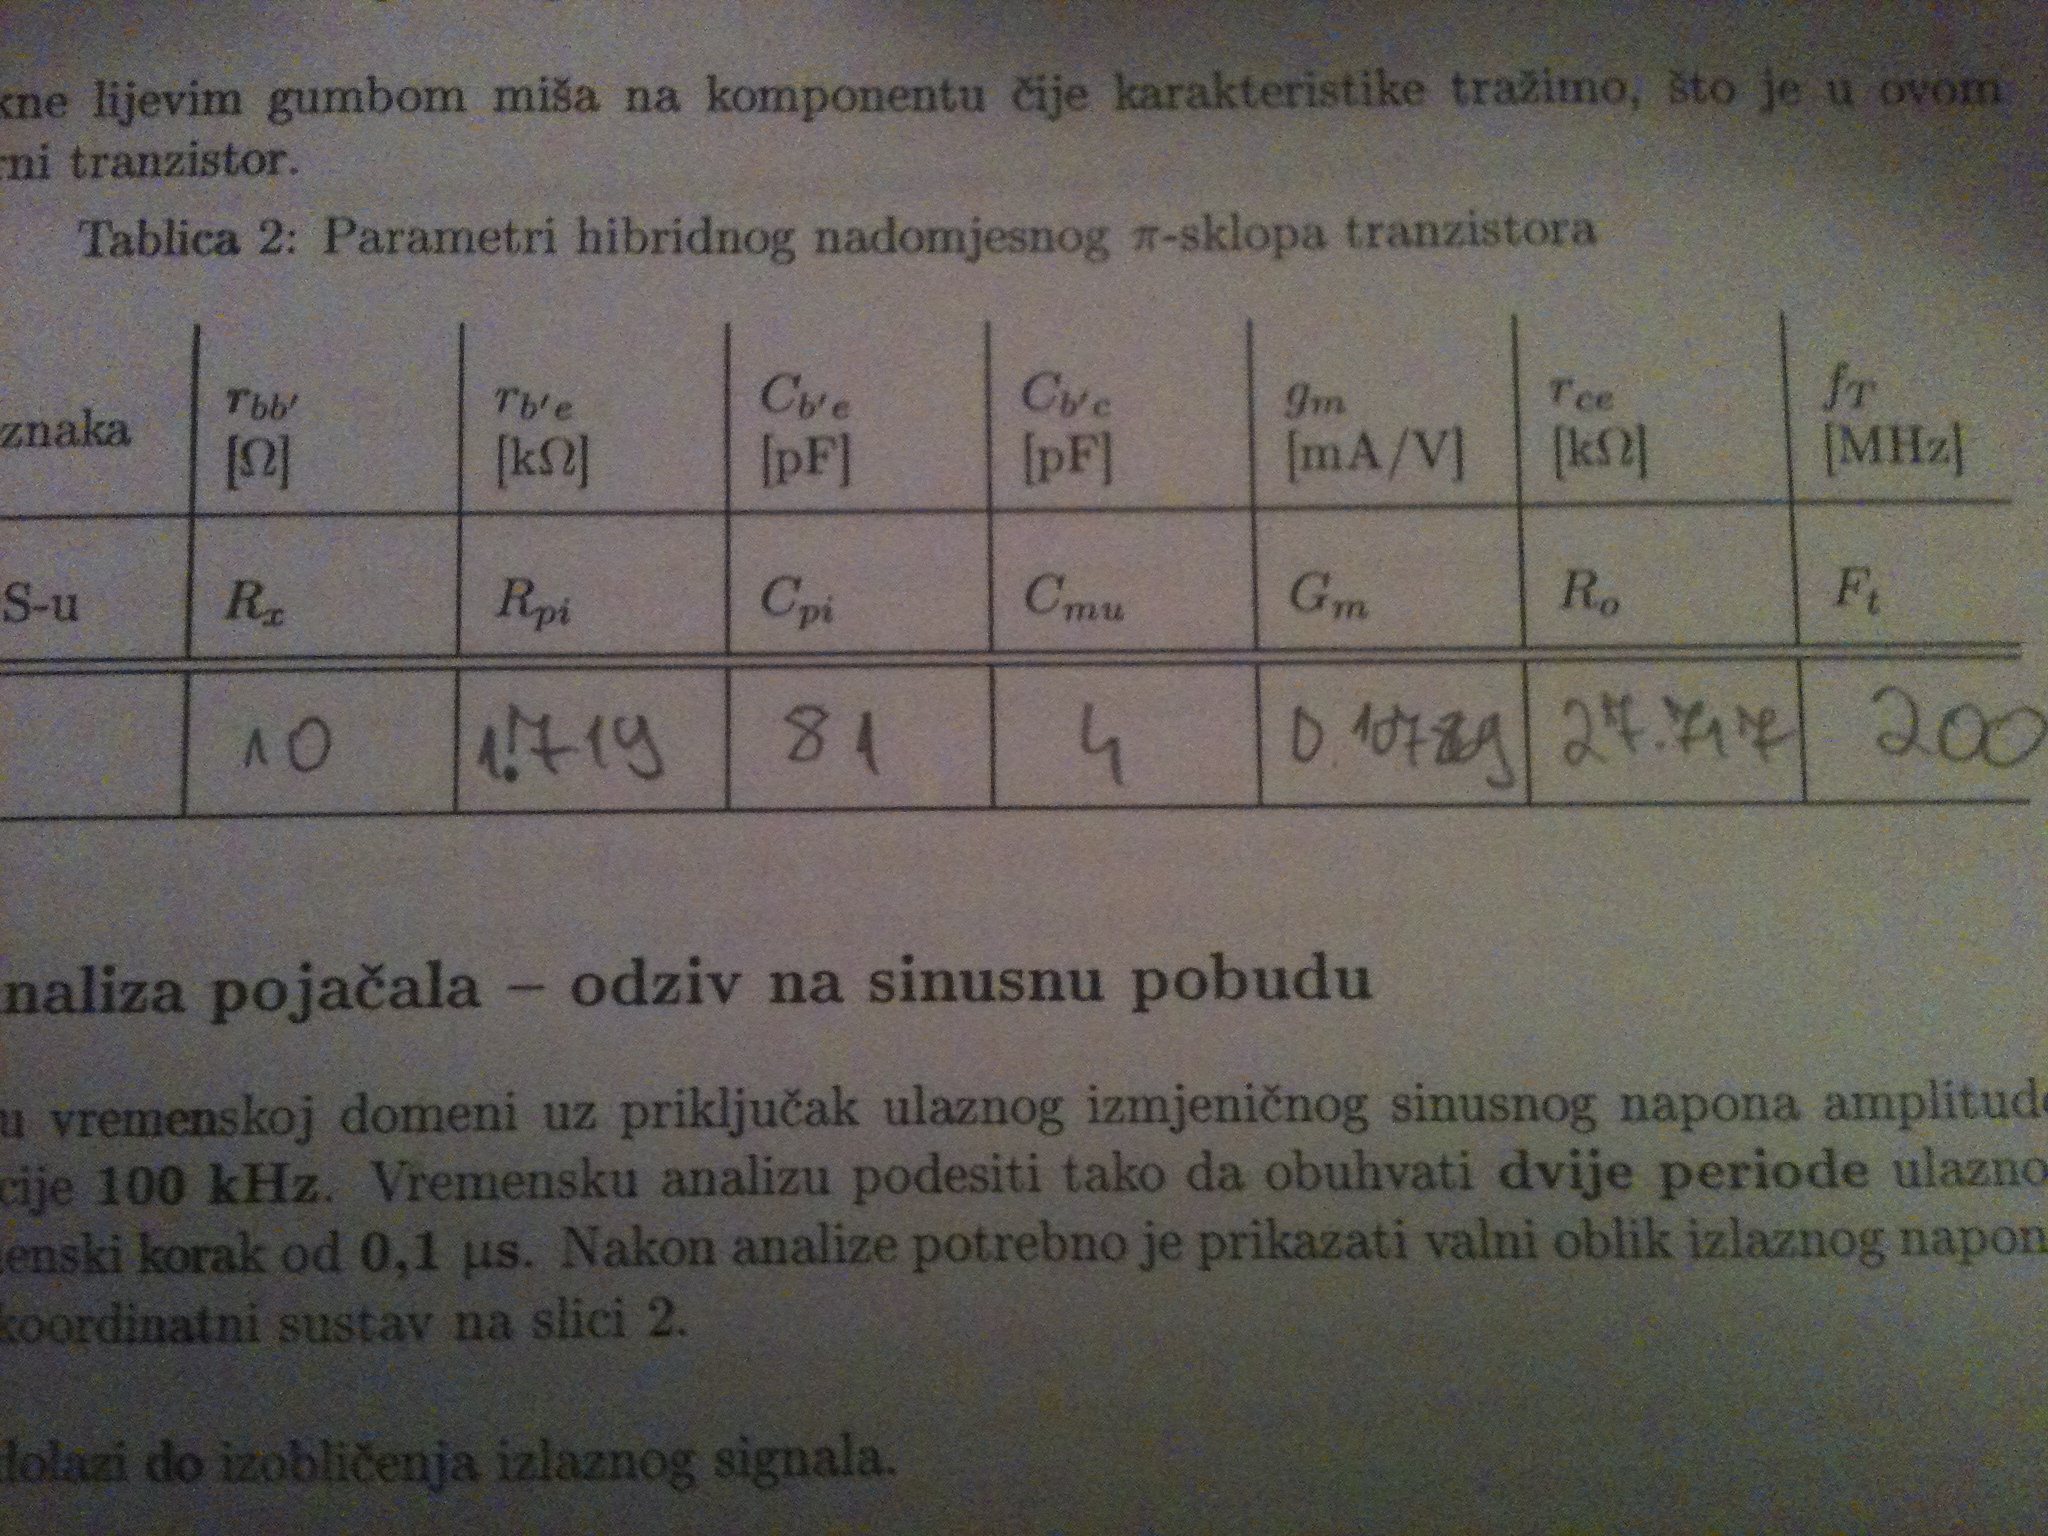 kne lijevim gumbom miša na komponentu čije karakteristike tražimo, što je u ovom
rni tranzistor.
Tablica 2: Parametri hibridnog nadomjesnog π-sklopa tranzistora
znaka rbb′ rb′e Cb′e Cb′c gm rce fT
[Ω] [kΩ] [pF] [pF] [mA/V] [kΩ] [MHz]
S-u Rx Rpi Cpi Cmu Gm Ro Ft
10 1.719 81 4 27.747 200
naliza pojačala – odziv na sinusnu pobudu
u vremenskoj domeni uz priključak ulaznog izmjeničnog sinusnog napona amplitude
cije 100 kHz. Vremensku analizu podesiti tako da obuhvati dvije periode ulazno
enski korak od 0,1 µs. Nakon analize potrebno je prikazati valni oblik izlaznog napon
koordinatni sustav na slici 2.
dolazi do izobličenja izlaznog signala.